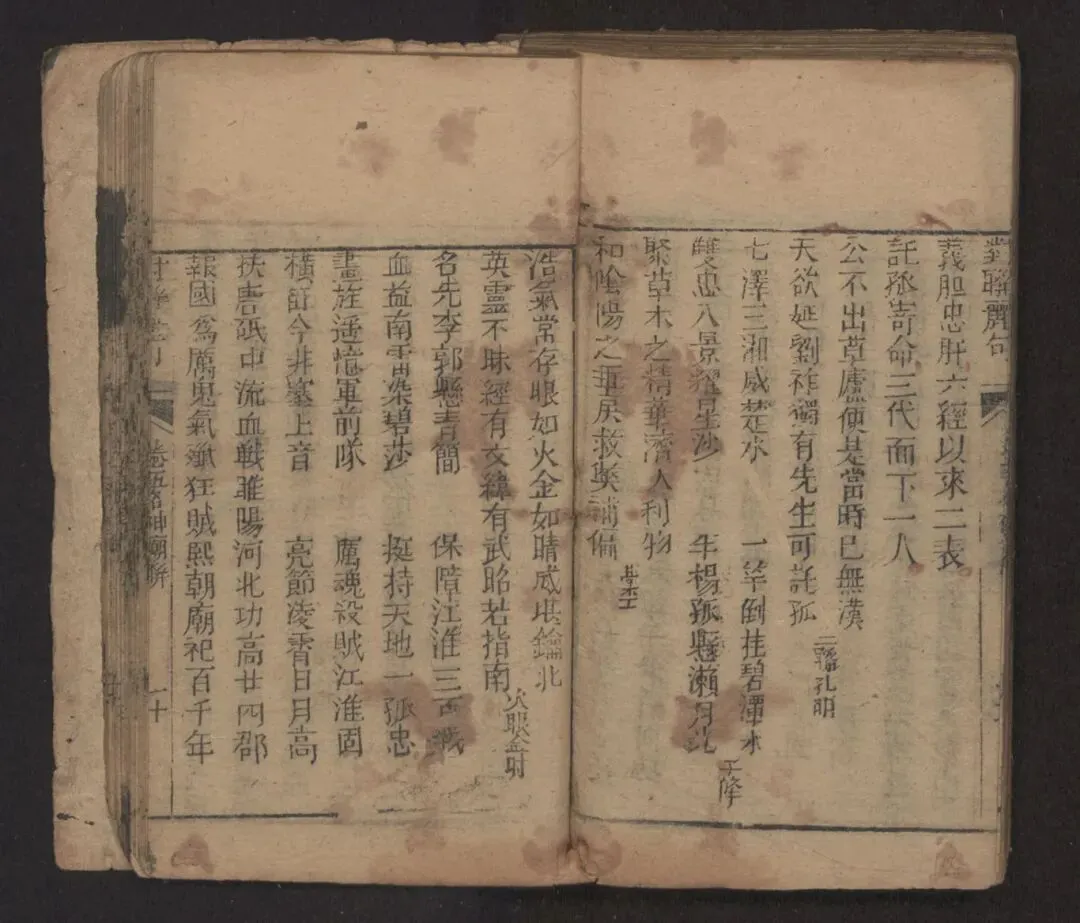 對聯麗句
義胆忠肝六經以來二表
託孤寄命三代而下一人
公不出草廬便是當時已無漢
天欲延劉祚獨有先生可託孤
三聯孔明
七澤三湘威楚水 一竿倒挂碧潭水
雙忠八景耀星沙 半楊孤懸瀨月
聚草木之精華濟人利物
和陰陽之 救 備
浩氣常存眼如火金如睛威 鑰北
英靈不昧經有文緯有武昭若指南
火眼金
名先李郭懸青簡 保障江淮三百戰
血益南雷染碧莎 挺持天地一孤忠
畫旌遥憶軍前隊 厲魂殺賊江淮固
橫 今井臺上音 亮節凌霄日月高
扶唐砥中流血戰雎陽河北功高廿四郡
報國爲厲鬼氣 狂賊熙朝廟祀百千年
卷五 神廟 二十